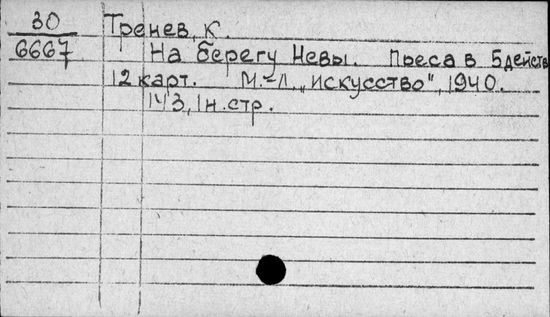 30 Тренев, К.
6667 На берегу Невы. Пьеса в 5 действ
12 карт. М.-Л., „Искусство", 1940.
143, 1 н. стр.